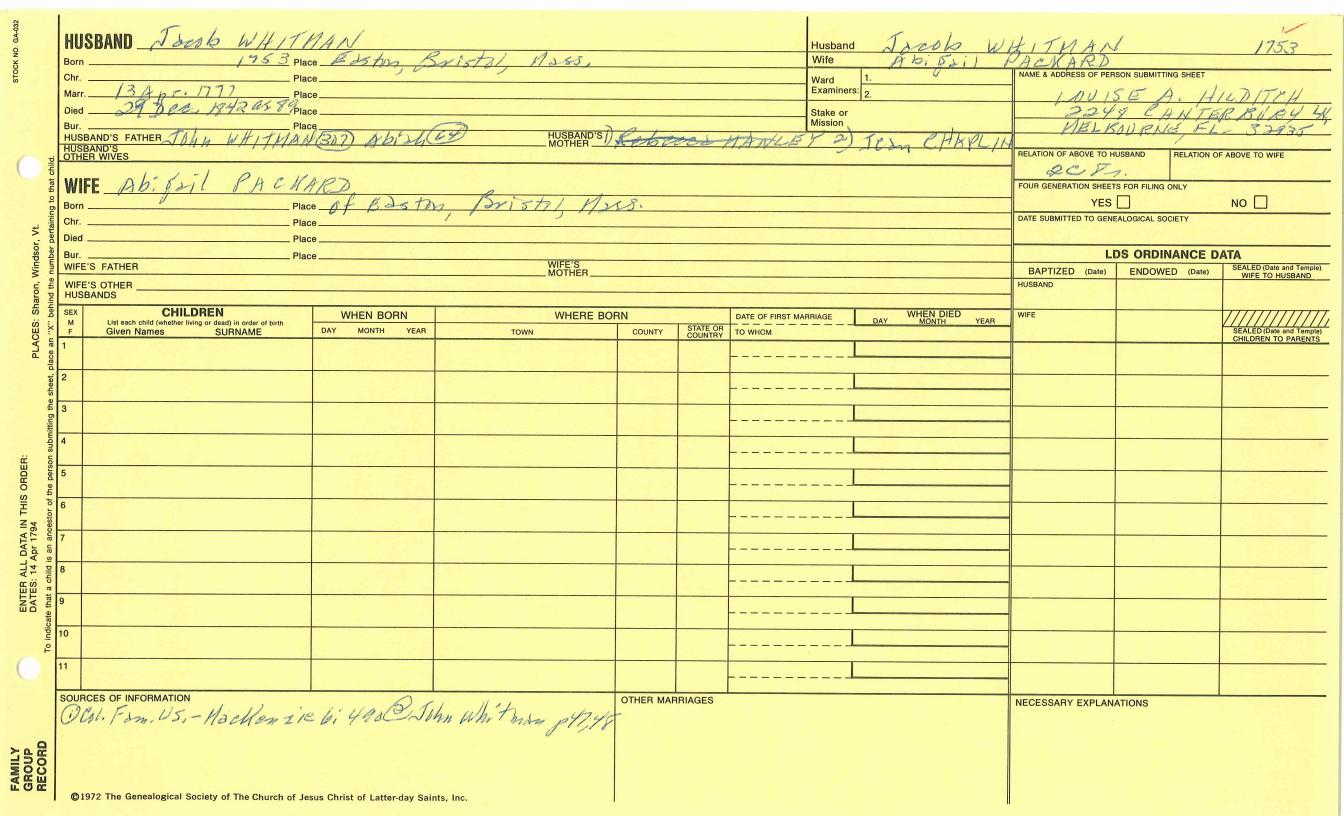 STOCK NO. GA-032
HUSBAND Jacob WHITMAN
Born 1753 Place Easton, Bristol, Mass.
Chr. Place
Marr. 13 Apr. 1777 Place
Died 29 Dec. 1842 as 89 Place
Bur. Place
HUSBAND'S FATHER John WHITMAN 307 Abiah 64 HUSBAND'S MOTHER 1) Rebecca MANLEY 2) Jean CHAPLIN
HUSBAND'S OTHER WIVES
WIFE Abigail PACKARD
Born Place of Easton, Bristol, Mass.
Chr. Place
Died Place
Bur. Place
WIFE'S FATHER WIFE'S MOTHER
WIFE'S OTHER HUSBANDS
Husband Jacob WHITMAN 1753
Wife Abigail PACKARD
Ward Examiners: 1.
2.
Stake or Mission
NAME & ADDRESS OF PERSON SUBMITTING SHEET
LOUISE A. HILDITCH
2249 CANTERBURY LN
MELBOURNE, FL. 32935
RELATION OF ABOVE TO HUSBAND RELATION OF ABOVE TO WIFE
FOUR GENERATION SHEETS FOR FILING ONLY
YES NO
DATE SUBMITTED TO GENEALOGICAL SOCIETY
LDS ORDINANCE DATA
BAPTIZED (Date) ENDOWED (Date) SEALED (Date and Temple) WIFE TO HUSBAND
HUSBAND
WIFE
SEALED (Date and Temple) CHILDREN TO PARENTS
SEX M F
CHILDREN
List each child (whether living or dead) in order of birth
Given Names SURNAME
WHEN BORN
DAY MONTH YEAR
WHERE BORN
TOWN COUNTY STATE OR COUNTRY
DATE OF FIRST MARRIAGE
TO WHOM
WHEN DIED
DAY MONTH YEAR
1
2
3
4
5
6
7
8
9
10
11
SOURCES OF INFORMATION
① Col. Fam. U.S. - MacKenzie 6: 490 ② John Whitman p47,48
OTHER MARRIAGES
NECESSARY EXPLANATIONS
©1972 The Genealogical Society of The Church of Jesus Christ of Latter-day Saints, Inc.
FAMILY GROUP RECORD
ENTER ALL DATA IN THIS ORDER:
DATES: 14 Apr 1794
PLACES: Sharon, Windsor, Vt.
To indicate that a child is an ancestor of the person submitting the sheet, place an "X" behind the number pertaining to that child.